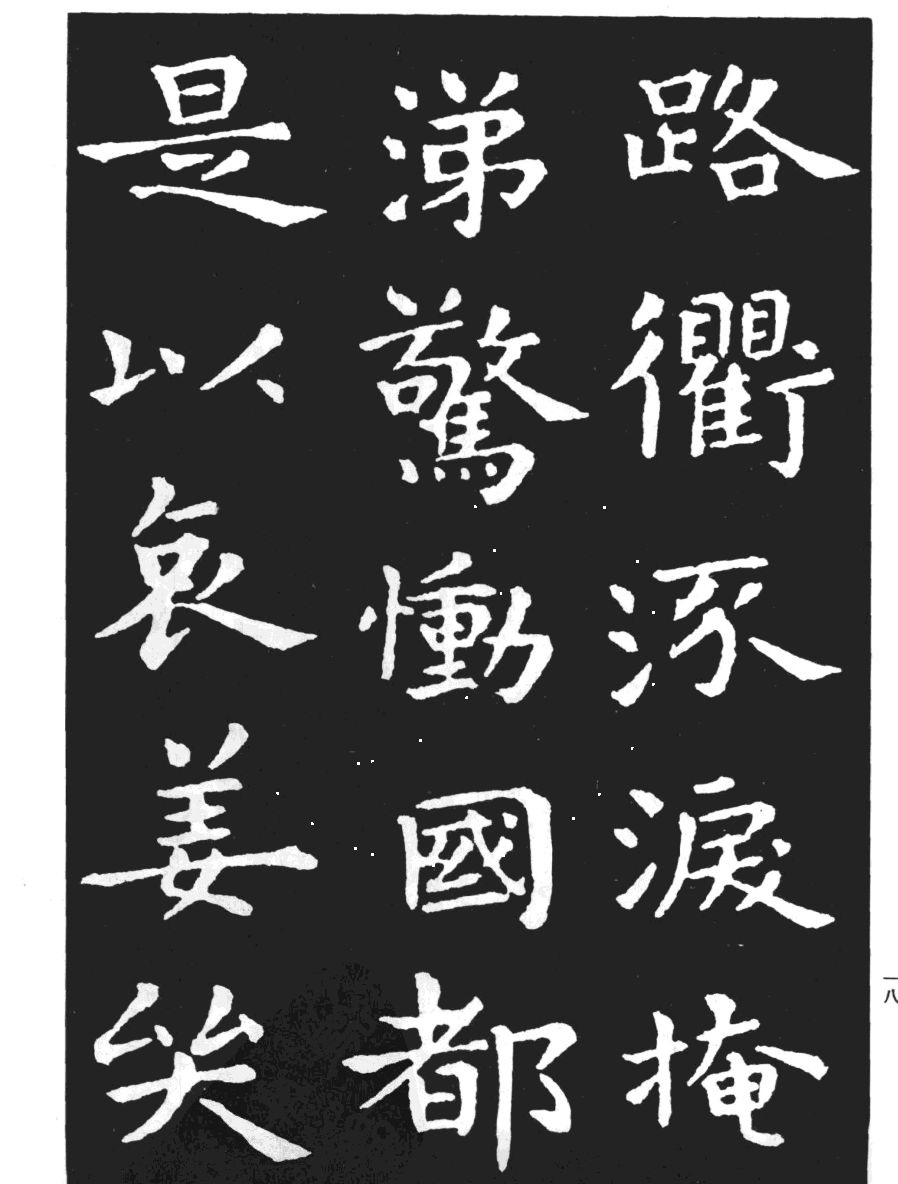 路衢涿淚掩
涕驚慟國都
是以哀姜哭
一八